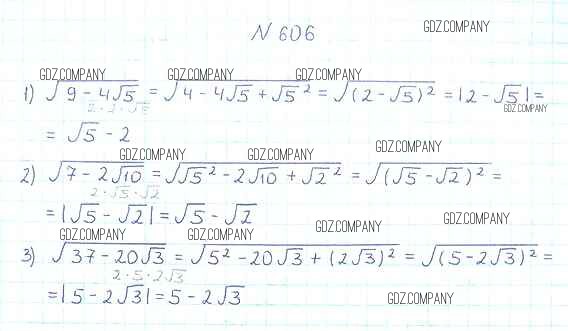 N 606
GDZ.COMPANY
GDZ.COMPANY GDZ.COMPANY GDZ.COMPANY
1) √(9 - 4√5) = √(4 - 4√5 + √5²) = √((2 - √5)²) = |2 - √5| =
2·2·√5
GDZ.COMPANY
= √5 - 2
GDZ.COMPANY GDZ.COMPANY GDZ.COMPANY
2) √(7 - 2√10) = √(√5² - 2√10 + √2²) = √((√5 - √2)²) =
2·√5·√2
= |√5 - √2| = √5 - √2
GDZ.COMPANY GDZ.COMPANY GDZ.COMPANY GDZ.COMPANY
3) √(37 - 20√3) = √(5² - 20√3 + (2√3)²) = √((5 - 2√3)²) =
2·5·2√3
= |5 - 2√3| = 5 - 2√3
GDZ.COMPANY